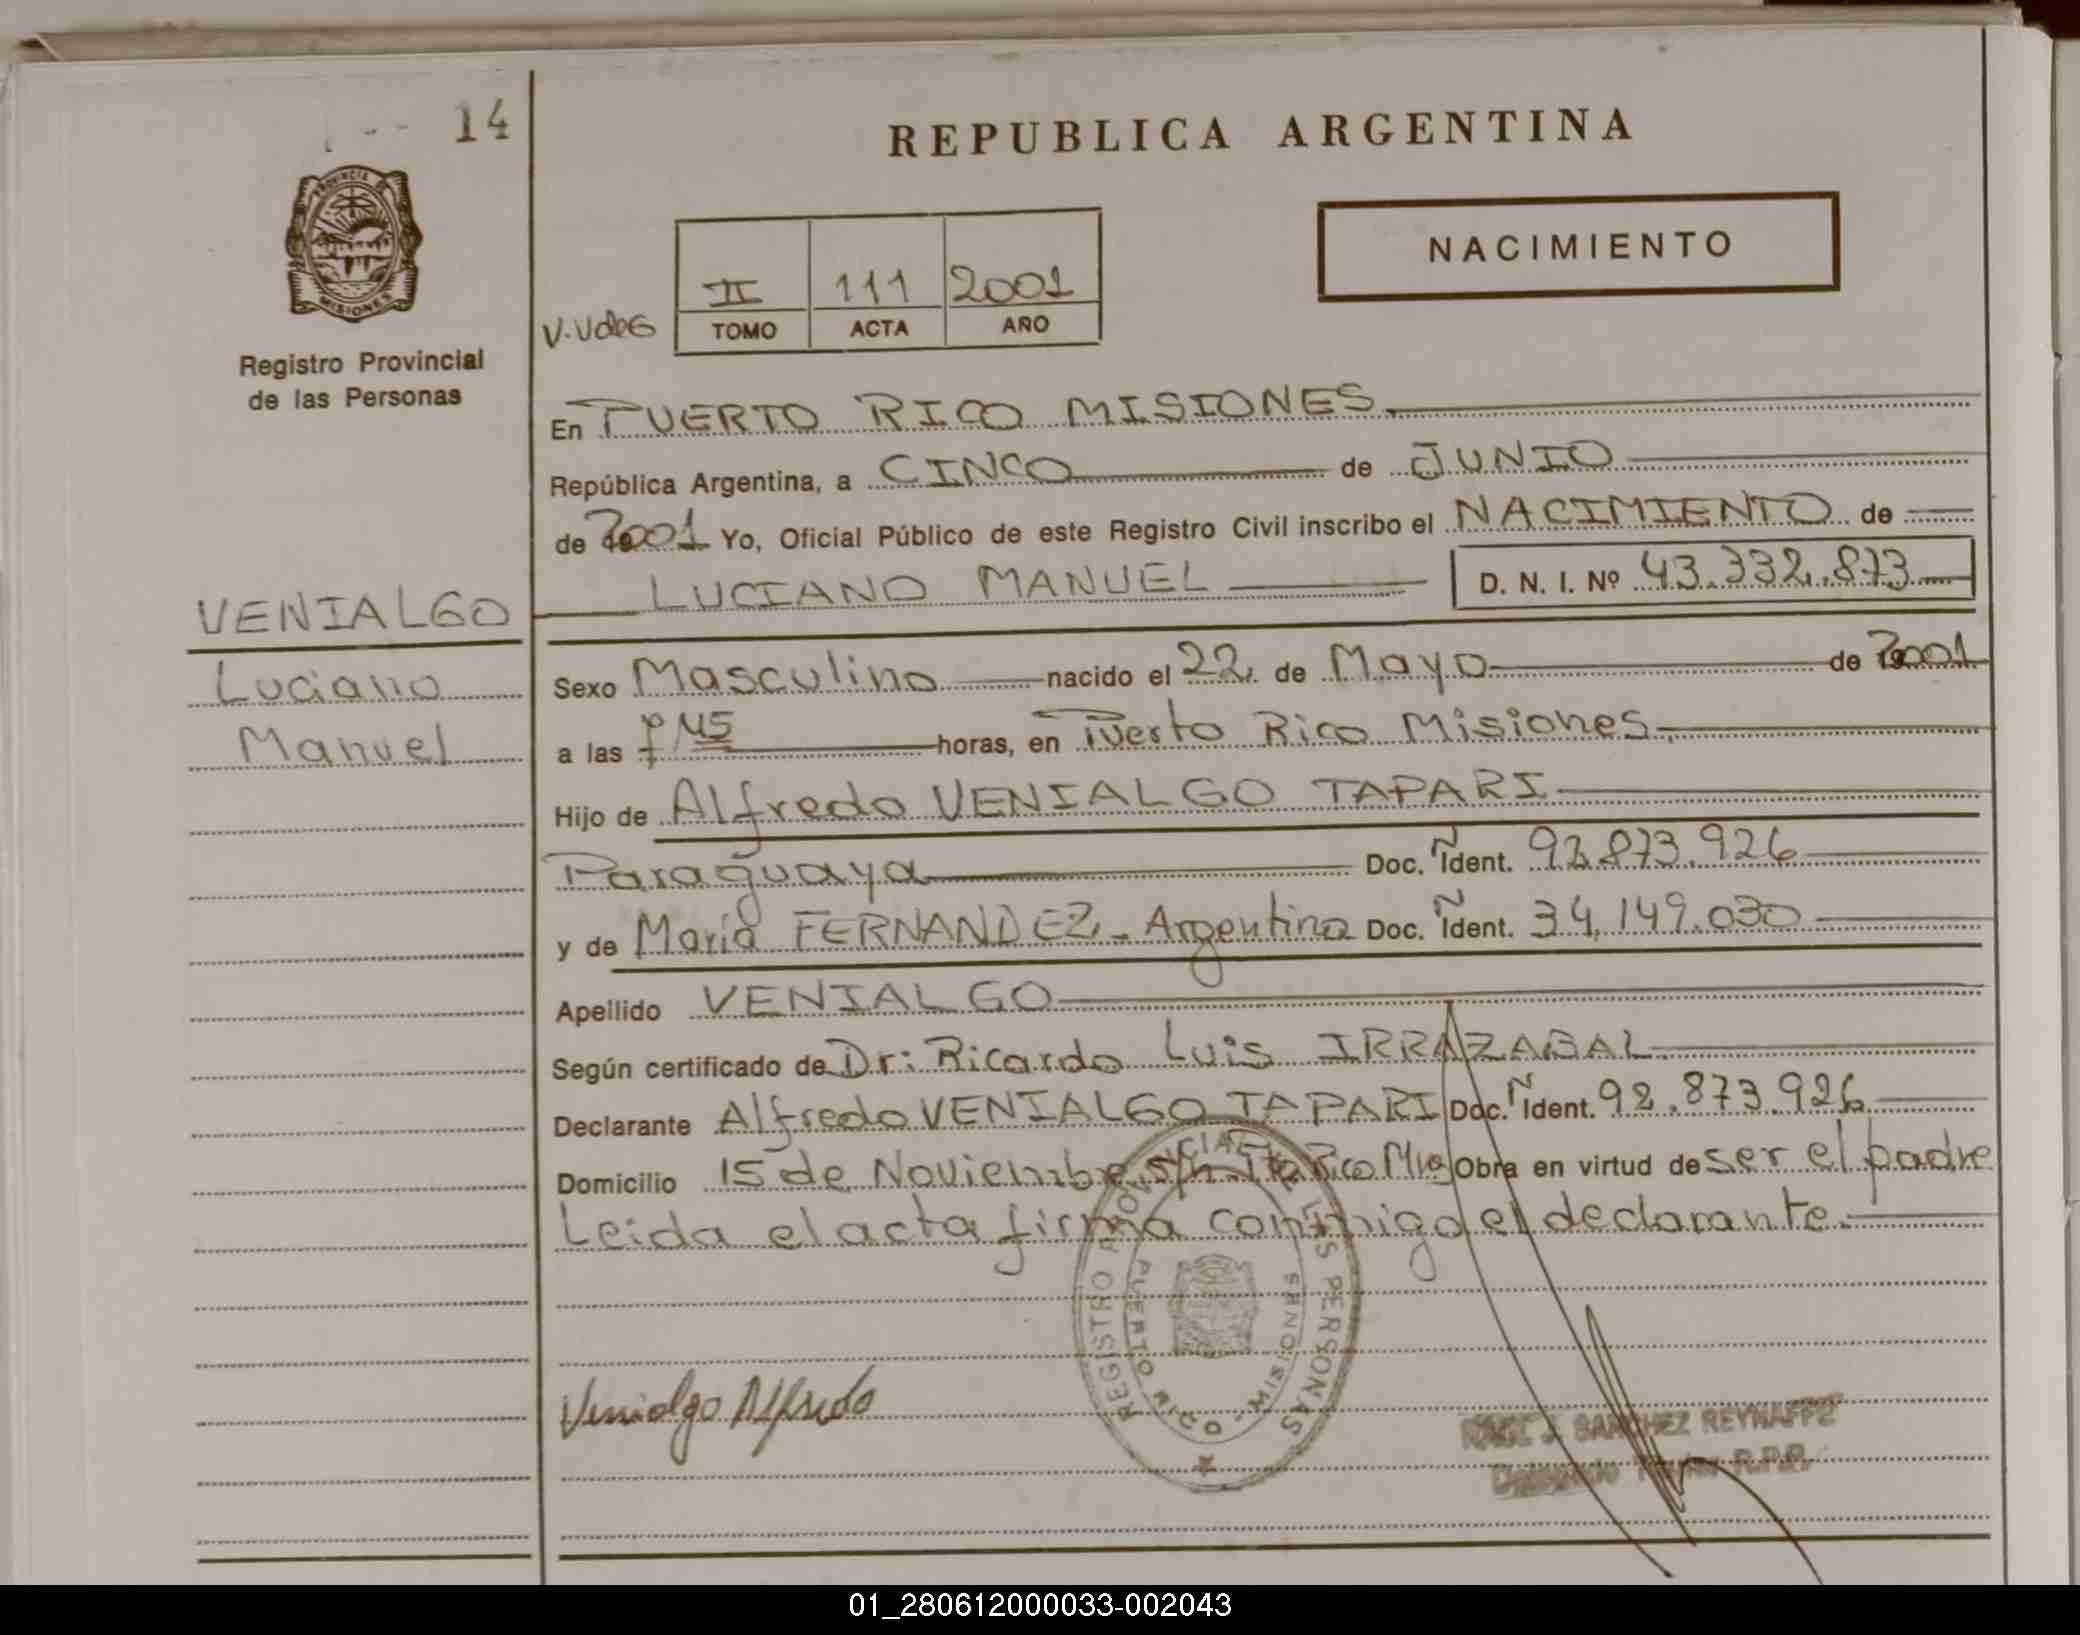 14
REPUBLICA ARGENTINA
PROVINCIA DE
MISIONES
NACIMIENTO
II 111 2001
TOMO ACTA AÑO
Registro Provincial
de las Personas
En PUERTO RICO MISIONES.
República Argentina, a CINCO de JUNIO
de 2001 Yo, Oficial Público de este Registro Civil inscribo el NACIMIENTO de
LUCIANO MANUEL D. N. I. Nº 43.332.873
VENIALGO
Luciano
Manuel
Sexo Masculino nacido el 22 de Mayo de 2001
a las horas, en Puerto Rico Misiones.
Hijo de Alfredo VENIALGO TAPARI
Paraguaya Doc. Ñ Ident. 92.873.926
y de María FERNANDEZ - Argentina Doc. Ñ Ident. 34.149.030
Apellido VENIALGO
Según certificado de Dr: Ricardo Luis IRRAZABAL
Declarante Alfredo VENIALGO TAPARI Doc. Ñ Ident. 92.873.926
Domicilio 15 de Noviembre s/n Pto Rico Mnes Obra en virtud de ser el padre
Leida el acta firma conmigo el declarante.
REGISTRO PROVINCIAL DE LAS PERSONAS
PUERTO RICO - MISIONES
Venialgo Alfredo
SANCHEZ
R.P.P.
01_280612000033-002043